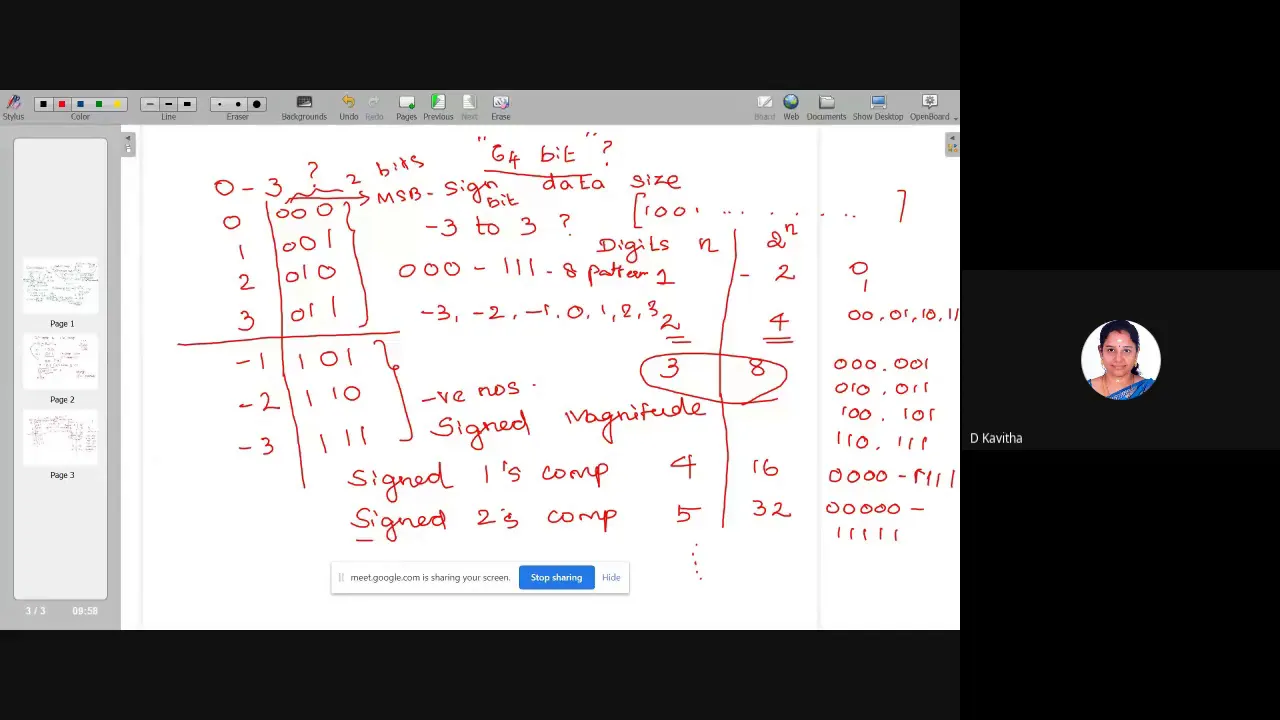 Stylus Color Line Eraser Backgrounds Undo Redo Pages Previous Next Erase Board Web Documents Show Desktop OpenBoard
"64 bit"?
0 - 3 ? 2 bits
MSB - Sign bit data size
0 000
[1001 .. .. . . . .. ]
1 001
-3 to 3 ?
Digits n 2^n
2 010
000 - 111 - 8 pattern
1 - 2 0 1
3 011
-3, -2, -1, 0, 1, 2, 3
2 4 00, 01, 10, 11
-1 101
3 8 000. 001
010. 011
100. 101
110. 111
-2 110
-ve nos.
-3 111
Signed Magnitude
Signed 1's comp 4 16 0000 - 1111
Signed 2's comp 5 32 00000 -
11111
Page 1
Page 2
Page 3
meet.google.com is sharing your screen. Stop sharing Hide
3 / 3 09:58
D Kavitha